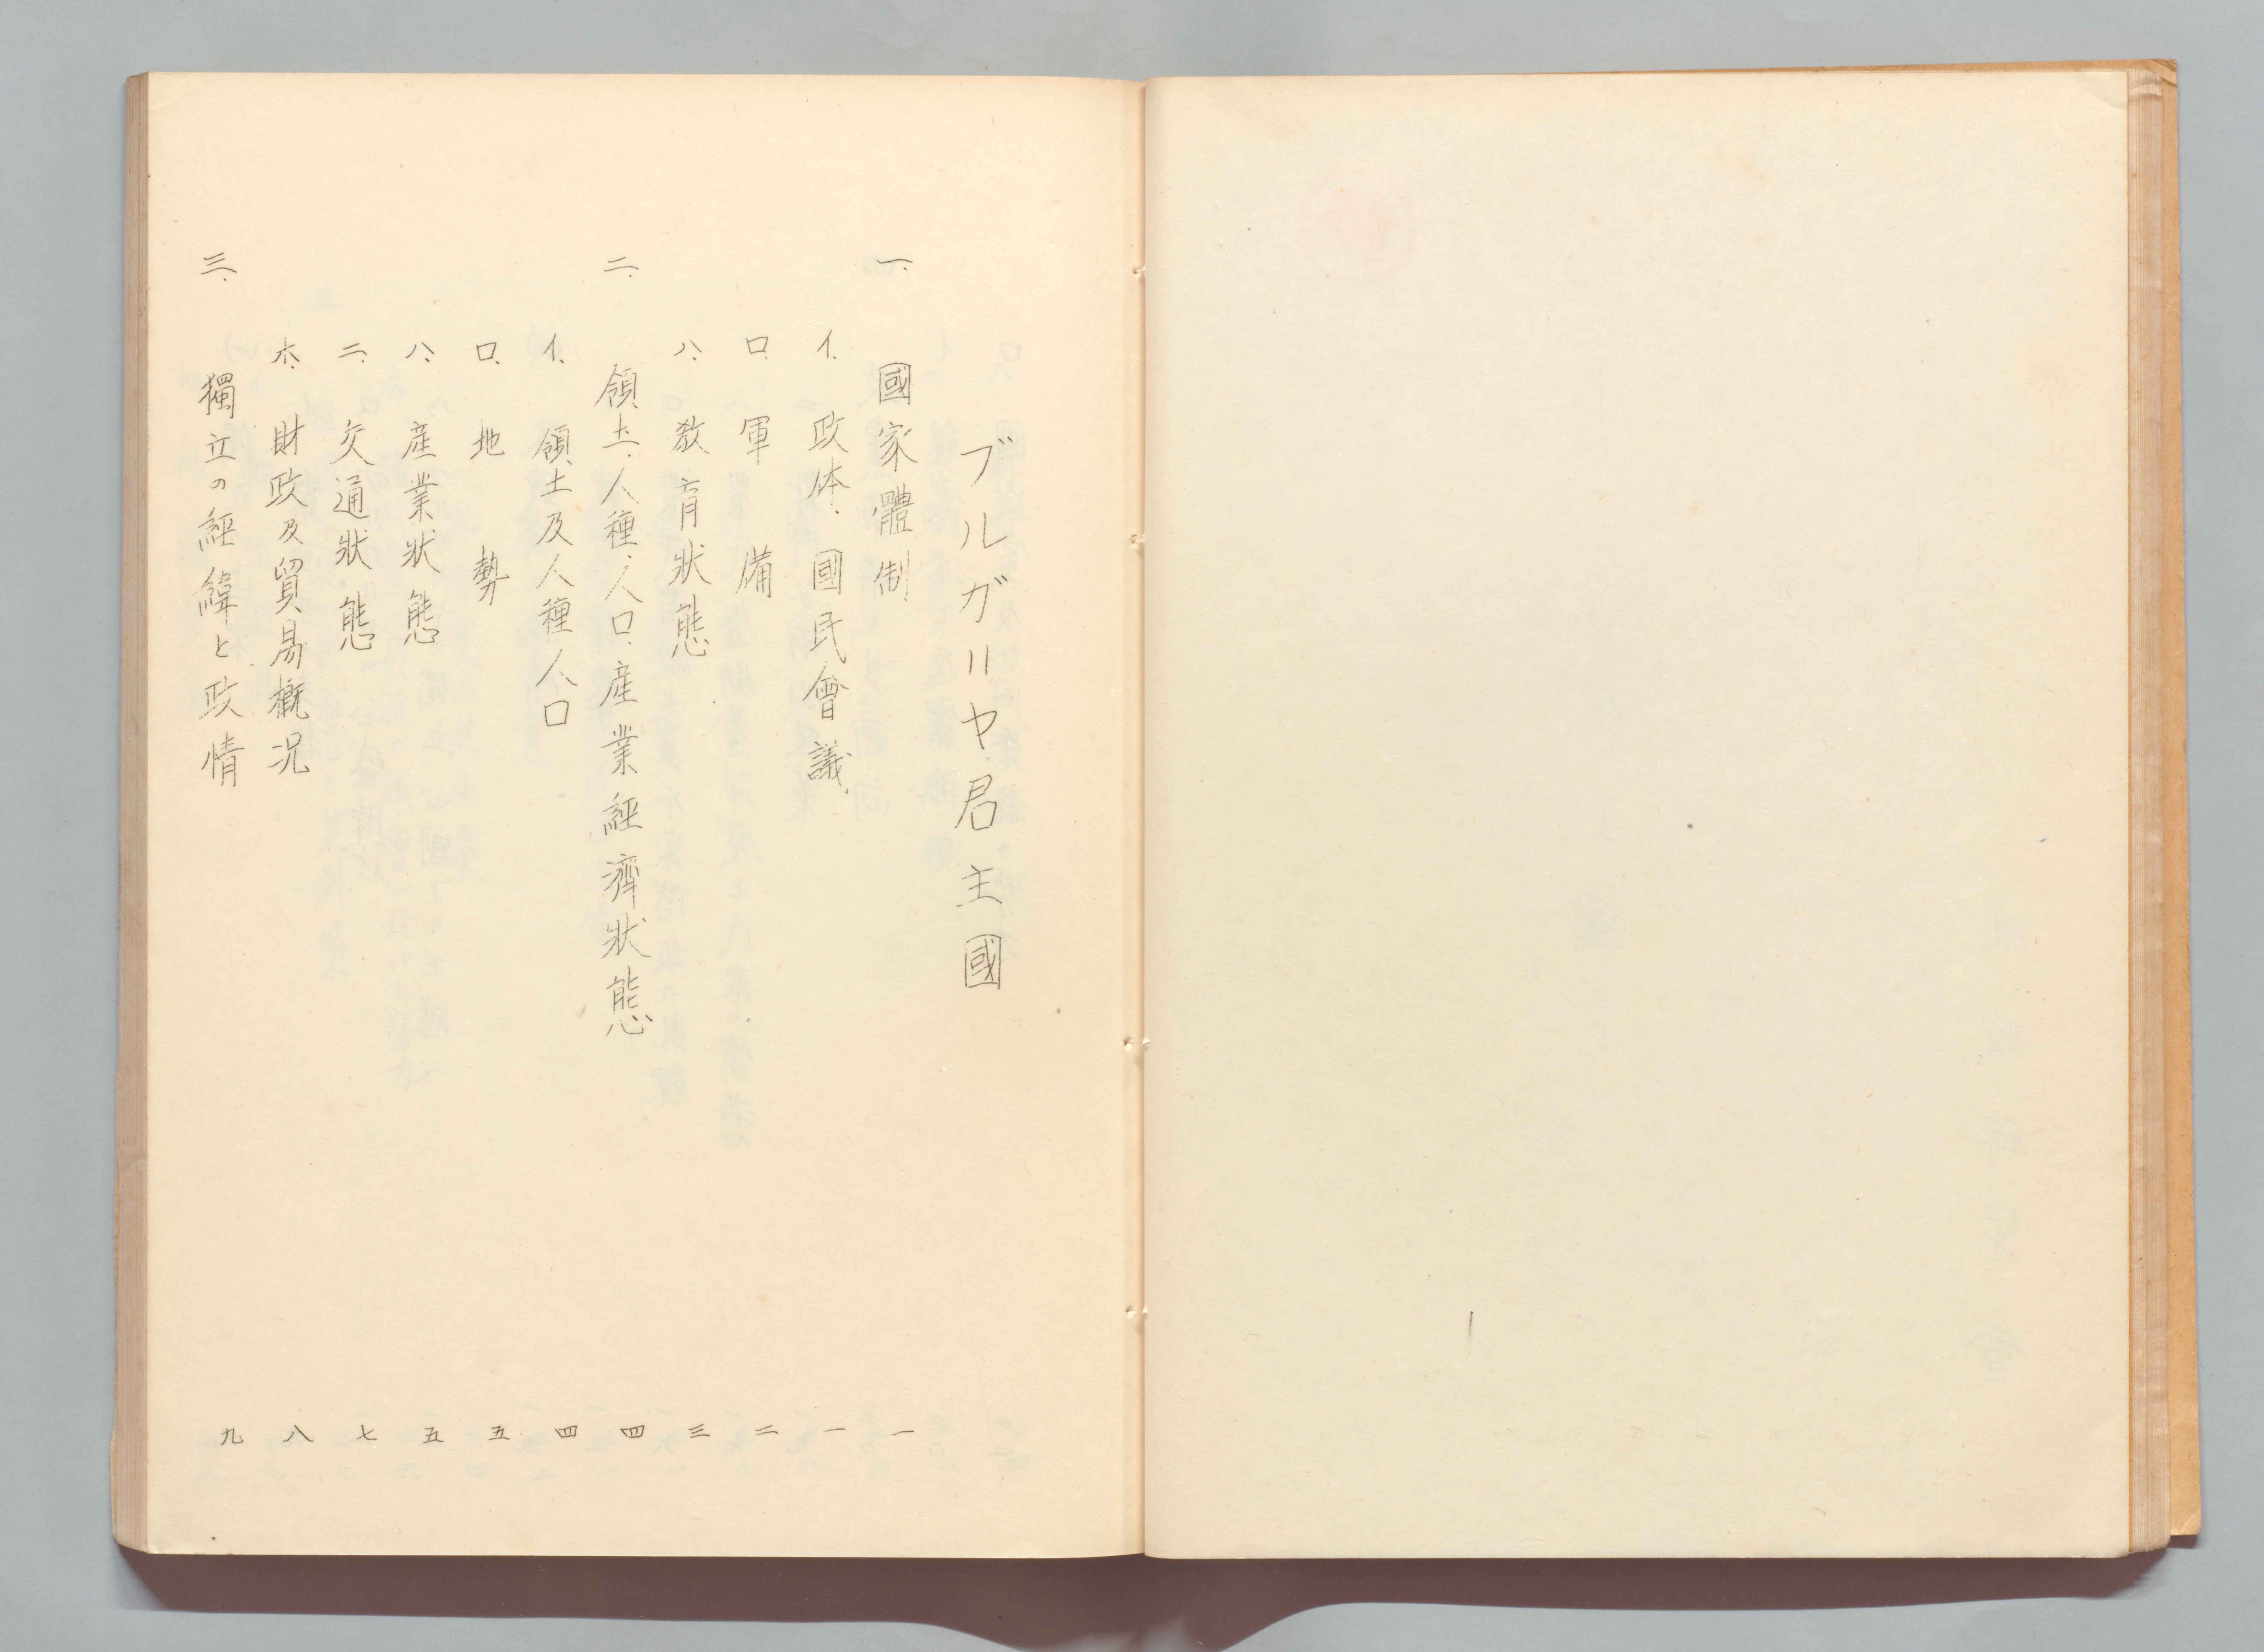 ブルガリヤ君主國
一、國家體制 一
イ、政体、國民會議、 一
ロ、軍備 二
ハ、敎育狀態 三
二、領土、人種、人口、産業経濟狀態 四
イ、領土及人種人口 四
ロ、地勢 五
ハ、産業狀態 五
ニ、交通狀態 七
ホ、財政及貿易槪况 八
三、獨立の経緯と政情 九